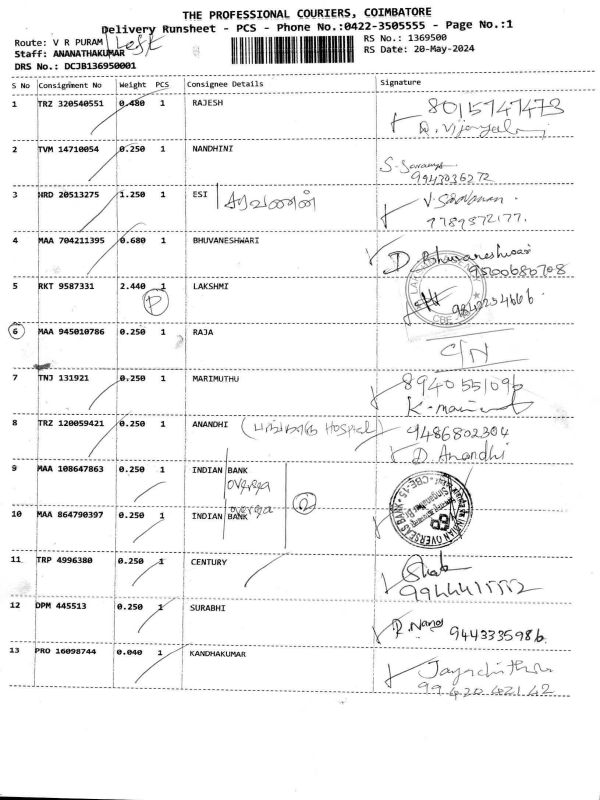 THE PROFESSIONAL COURIERS, COIMBATORE
Delivery Runsheet - PCS - Phone No.:0422-3505555 - Page No.:1
Route: V R PURAM
RS No.: 1369500
Staff: ANANATHAKUMAR
RS Date: 20-May-2024
DRS No.: DCJB136950001
S No Consignment No Weight PCS Consignee Details Signature
1 TRZ 320540551 0.480 1 RAJESH 8015747473
2 TVM 14710054 0.250 1 NANDHINI
9943036272
3 HRD 20513275 1.250 1 ESI சரவணன்
7789372177.
4 MAA 704211395 0.680 1 BHUVANESHWARI D Bhuvaneshwari
9500680708
5 RKT 9587331 2.440 1 LAKSHMI
P 9842254666.
6 MAA 945010786 0.250 1 RAJA C/N
7 TNJ 131921 0.250 1 MARIMUTHU 8940551096
8 TRZ 120059421 0.250 1 ANANDHI Hospital) 9486802304
D. Anandhi
9 MAA 108647863 0.250 1 INDIAN BANK
oversea
10 MAA 864790397 0.250 1 INDIAN BANK oversea 2
INDIAN OVERSEAS BANK CBE-15
11 TRP 4996380 0.250 1 CENTURY
9944415552
12 DPM 445513 0.250 1 SURABHI
9443335986
13 PRO 16098744 0.040 1 KANDHAKUMAR
9942042142